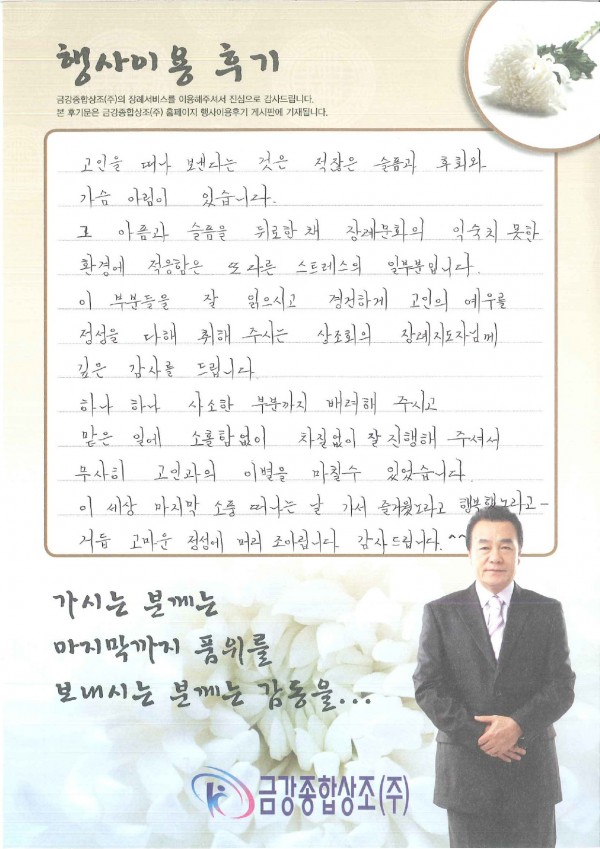 행사이용 후기
금강종합상조(주)의 장례서비스를 이용해주셔서 진심으로 감사드립니다.
본 후기문은 금강종합상조(주) 홈페이지 행사이용후기 게시판에 기재됩니다.
고인을 떠나 보낸다는 것은 적잖은 슬픔과 후회와
가슴 아림이 있습니다.
그 아픔과 슬픔을 뒤로한 채 장례문화의 익숙치 못한
환경에 적응함은 또 다른 스트레스의 일부분입니다.
이 부분들을 잘 읽으시고 경건하게 고인의 예우를
정성을 다해 취해 주시는 상조회의 장례지도자님께
깊은 감사를 드립니다
하나 하나 사소한 부분까지 배려해 주시고
맡은 일에 소홀함없이 차질없이 잘 진행해 주셔서
무사히 고인과의 이별을 마칠수 있었습니다.
이 세상 마지막 소풍 떠나는 날 가서 즐거웠노라고 행복했노라고-
거듭 고마운 정성에 머리 조아립니다 감사드립니다. ^^
가시는 분께는
마지막까지 품위를
보내시는 분께는 감동을...
금강종합상조(주)